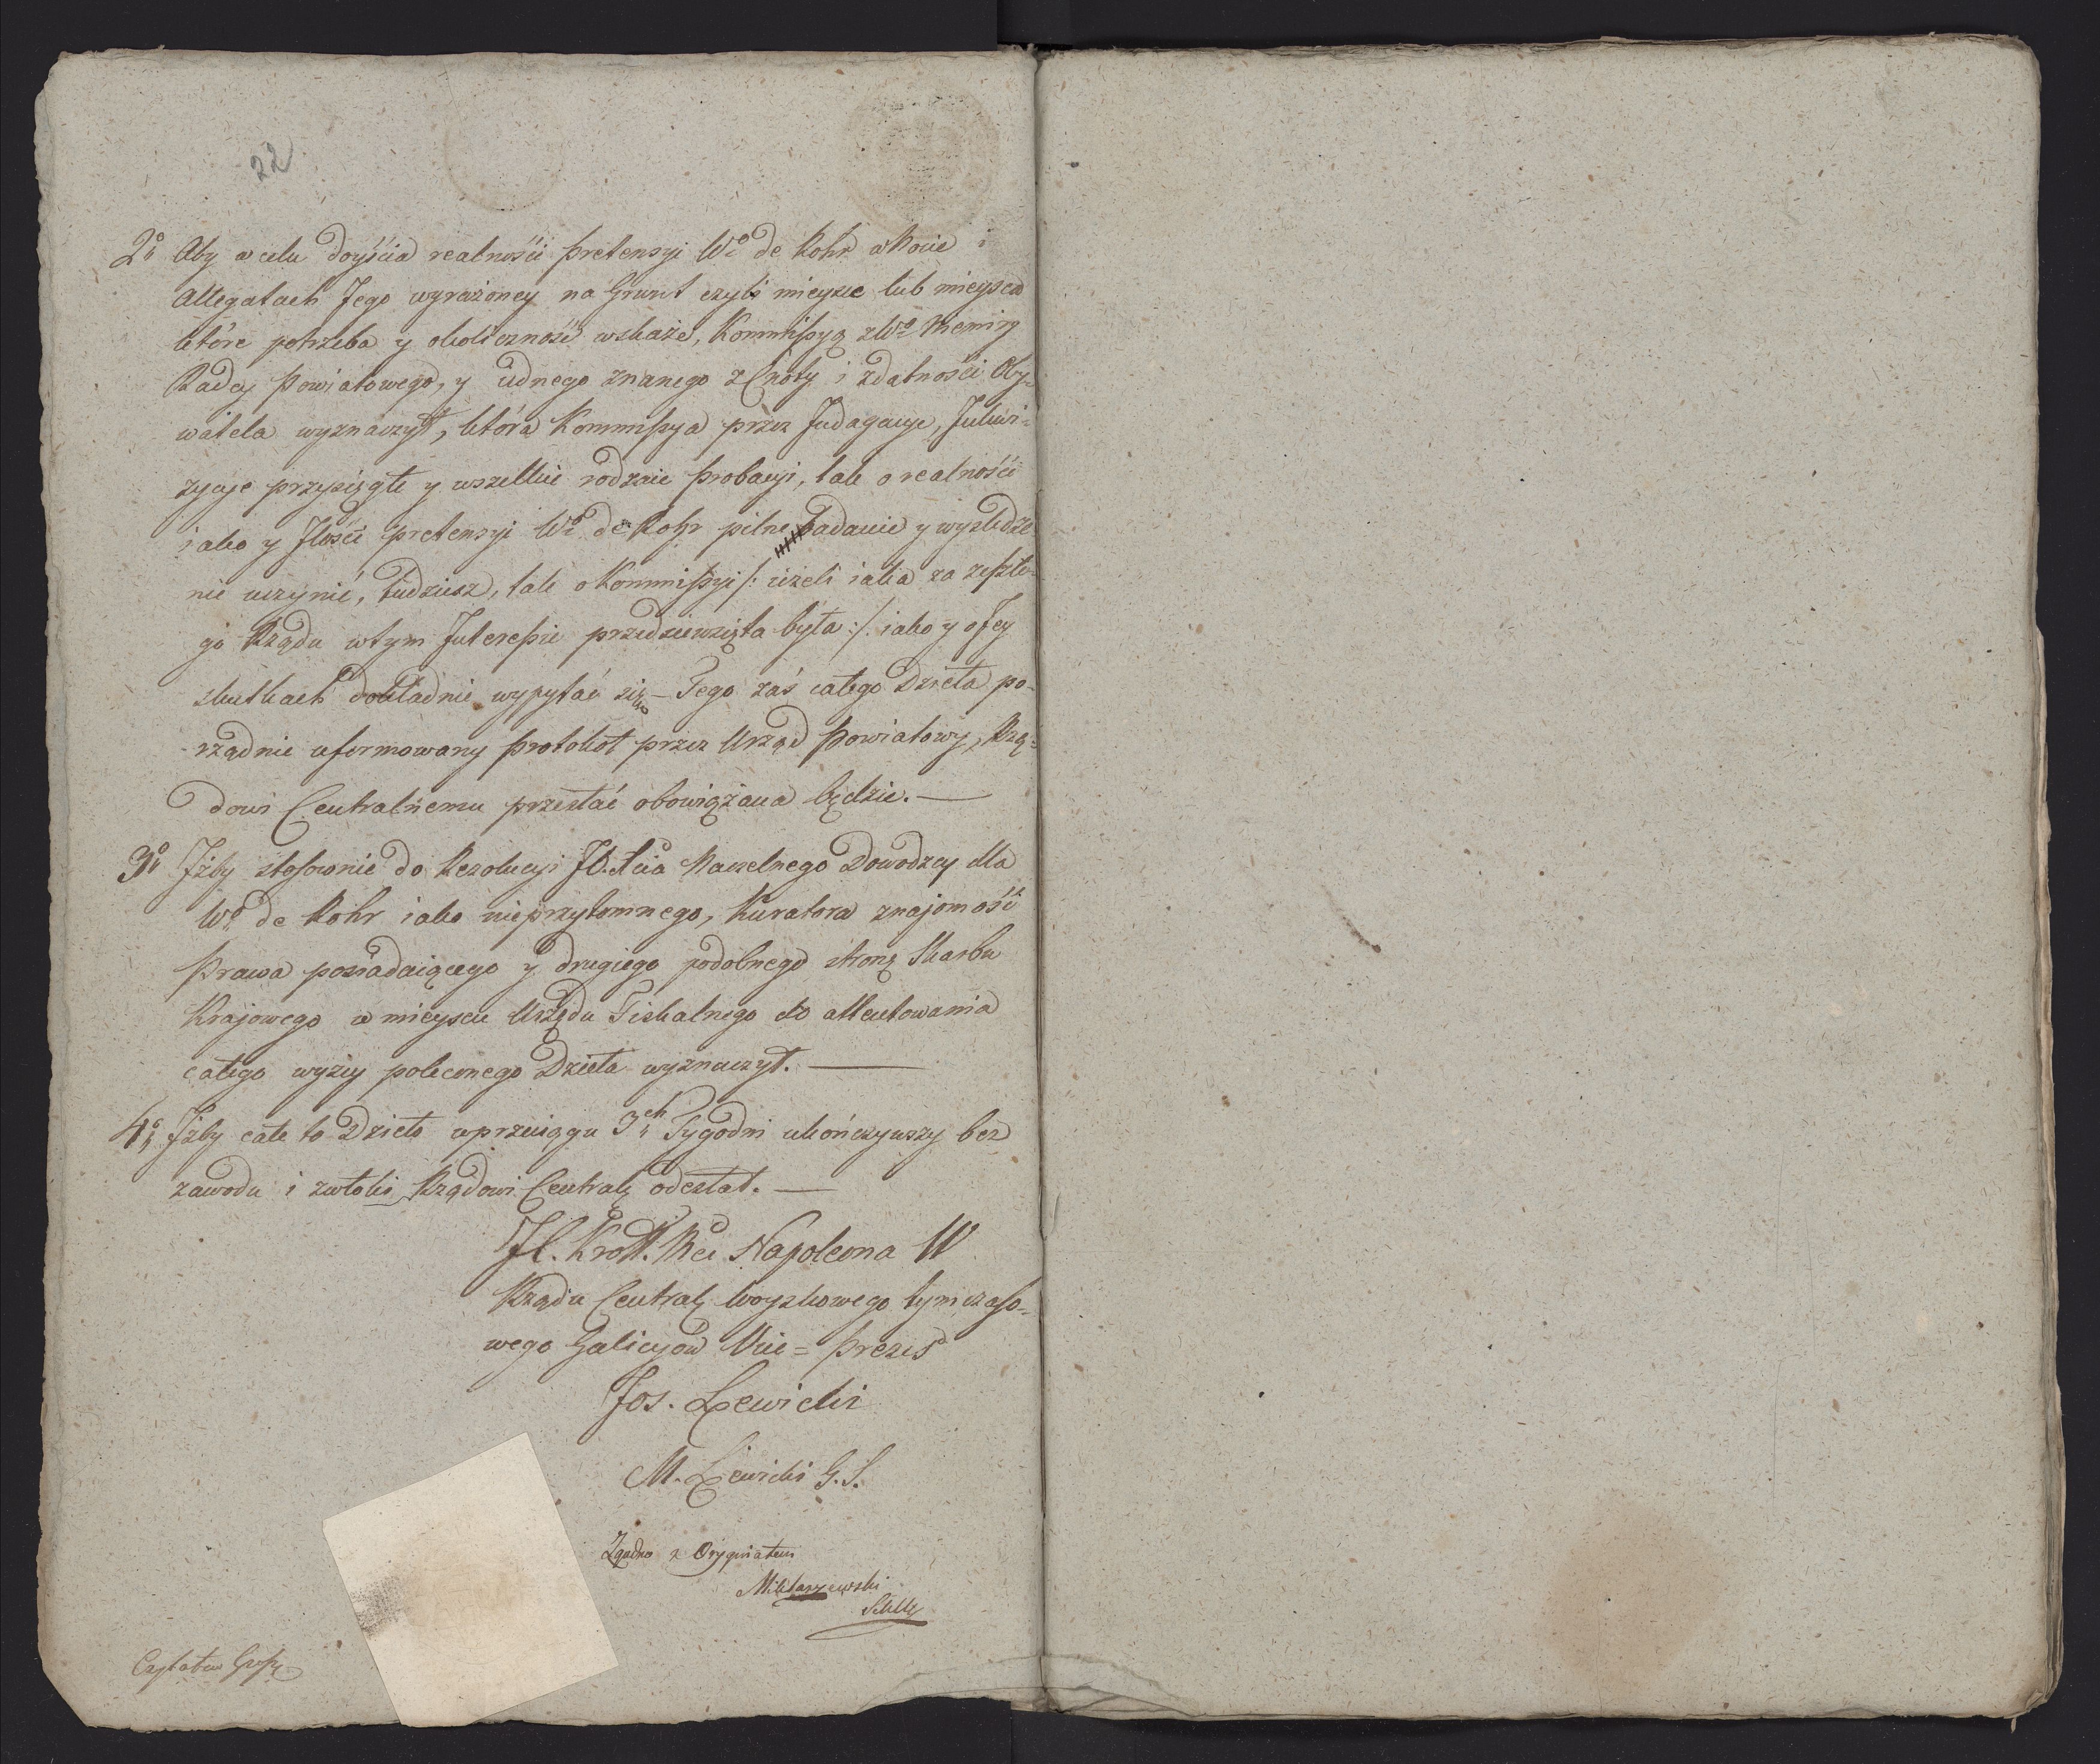 22
2° Aby w celu doyścia realności pretensyi W° de Rohr w Nocie i
Allegatach Jego wyrażoney na Grunt czyli mieysce lub mieysca
które potrzeba y okoliczność wskaże, Kommissyą z W°
Radcy Powiatowego, y iednego znanego z Cnoty i zdatności Oby-
watela wyznaczył, która Kommissya przez Indagacye, Inkwi-
zycye przysięgłe y wszelkie rodzaie probacyi, tak o realności
iako y Jlości pretensyi W° de Rohr pilne badanie y wyśledze-
nie uczynić, tudziesz, tak o Kommissyi /: ieżeli iaka za zeszłe-
go Rządu w tym Interessie przedsiewzięta była :/ iako y o Jey
skutkach dokładnie wypytać się — Tego zaś całego Dzieła po-
rządnie uformowany protokoł przez Urząd Powiatowy, Rzą-
dowi Centralnemu przesłać obowiązana będzie. —
3° Jżby stosownie do Rezolucyi JO. Xcia Naczelnego Dowodzcy dla
W° de Rohr iako nieprzytomnego, Kuratora znajomość
Prawa posiadaiącego y drugiego podobnego stronę Skarbu
Krajowego w mieyscu Urzędu Fiskalnego do attentowania
całego wyżey poleconego Dzieła wyznaczył. —
4° Jżby całe to Dzieło w przeciągu 3ch Tygodni ukończywszy bez
zawodu i zwłoki Rządowi Central: odesłał. —
J. C. Kroll. Mci Napoleona W
Rządu Central: Woyskowego tymczaso-
wego Galicyów Vice = Prezes
Jos. Lewicki
M. Lewicki G. S.
Zgodno z Oryginałem
Mikłaszewski
Czytałem